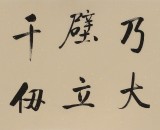 乃大
壁立
千仞